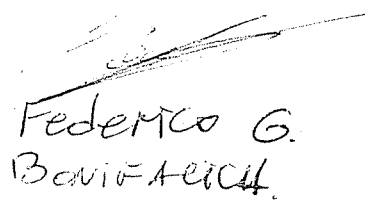 Federico G.
BONIFACICH.